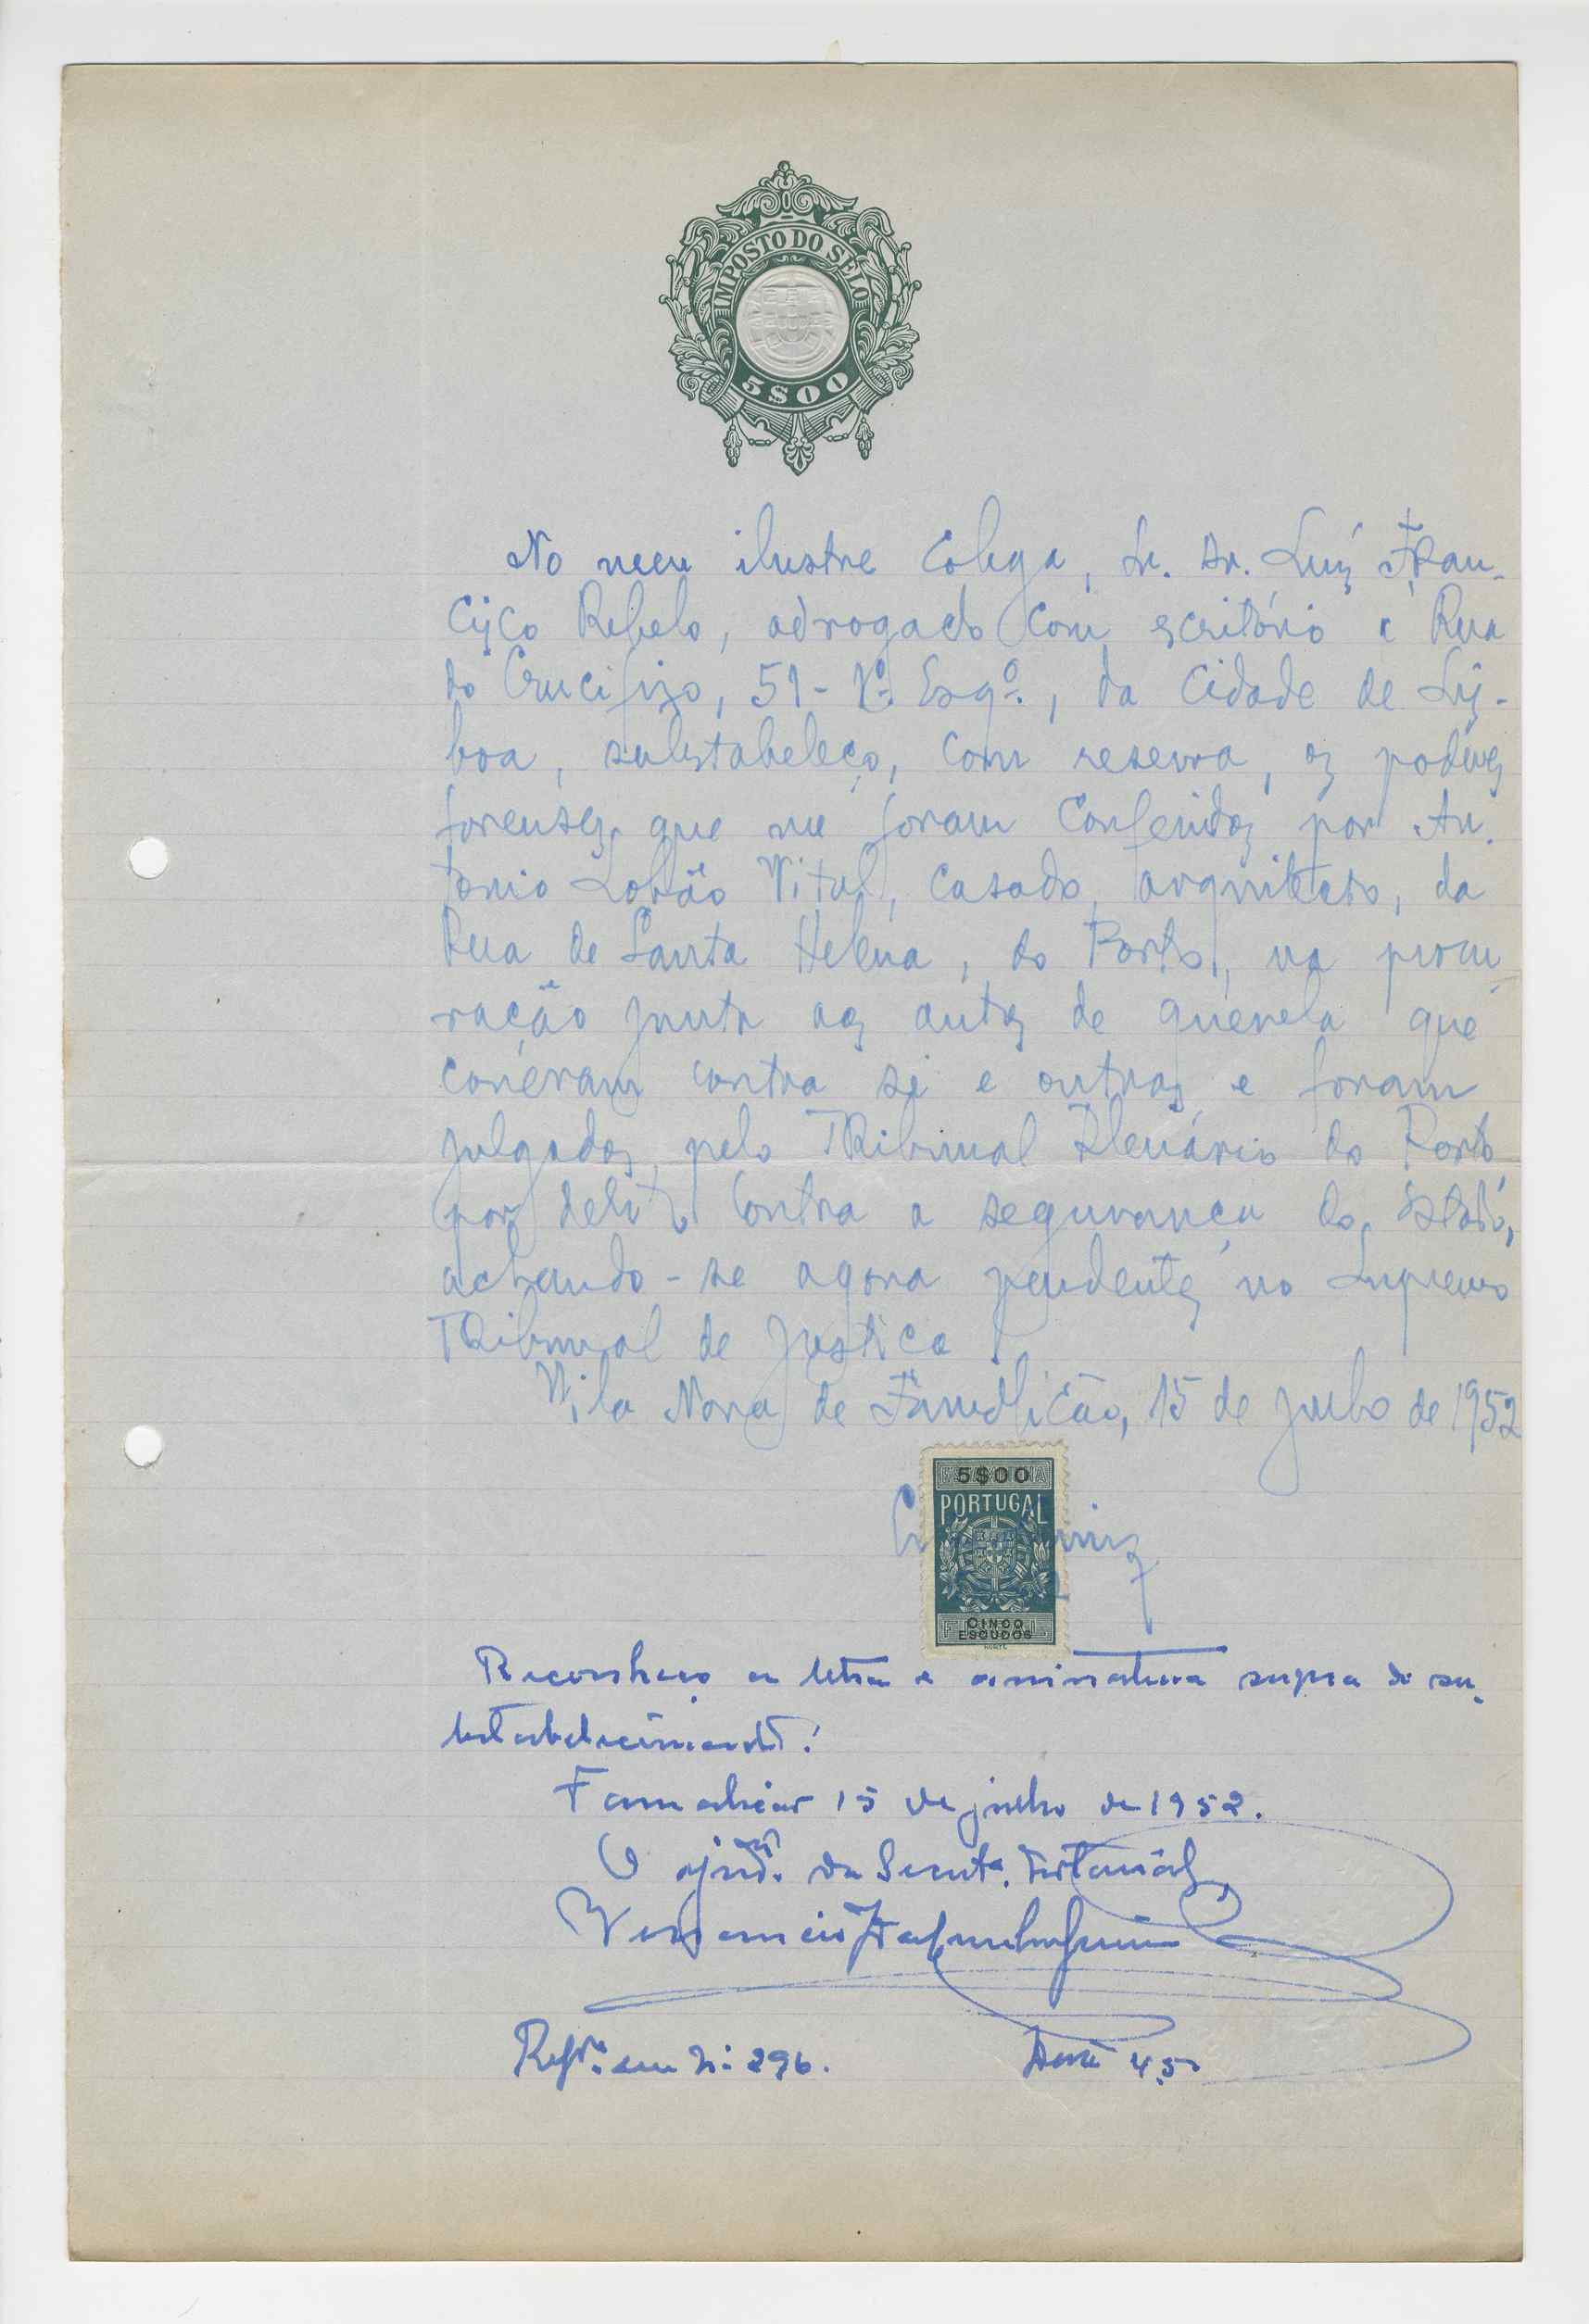 IMPOSTO DO SELO
5$00
No meu ilustre Colega, Sr. Dr. Luiz Fran-
cisco Rebelo, advogado com escritório à Rua
do Crucifixo, 51- Esqº., da Cidade de Lis-
boa, substabeleço, com reserva, os poderes
forenses que me foram conferidos por An-
tonio Lobão Vital, casado, arquitecto, da
Rua de Santa Helena, do Porto, na procu-
ração junta aos autos de querela que
correram contra si e outros, e foram
julgados, pelo Tribunal Plenário do Porto,
por delitos contra a segurança do Estado,
achando-se agora pendentes no Supremo
Tribunal de Justiça.
Vila Nova de Famalicão, 15 de julho de 1952
5$00
PORTUGAL
CINCO
ESCUDOS
Reconheço a letra e assinatura supra do su-
bstabelecimento.
Famalicão 15 de julho de 1952.
O ajudte. da Secretª. Notarial,
Regdº. sem nº: 296.